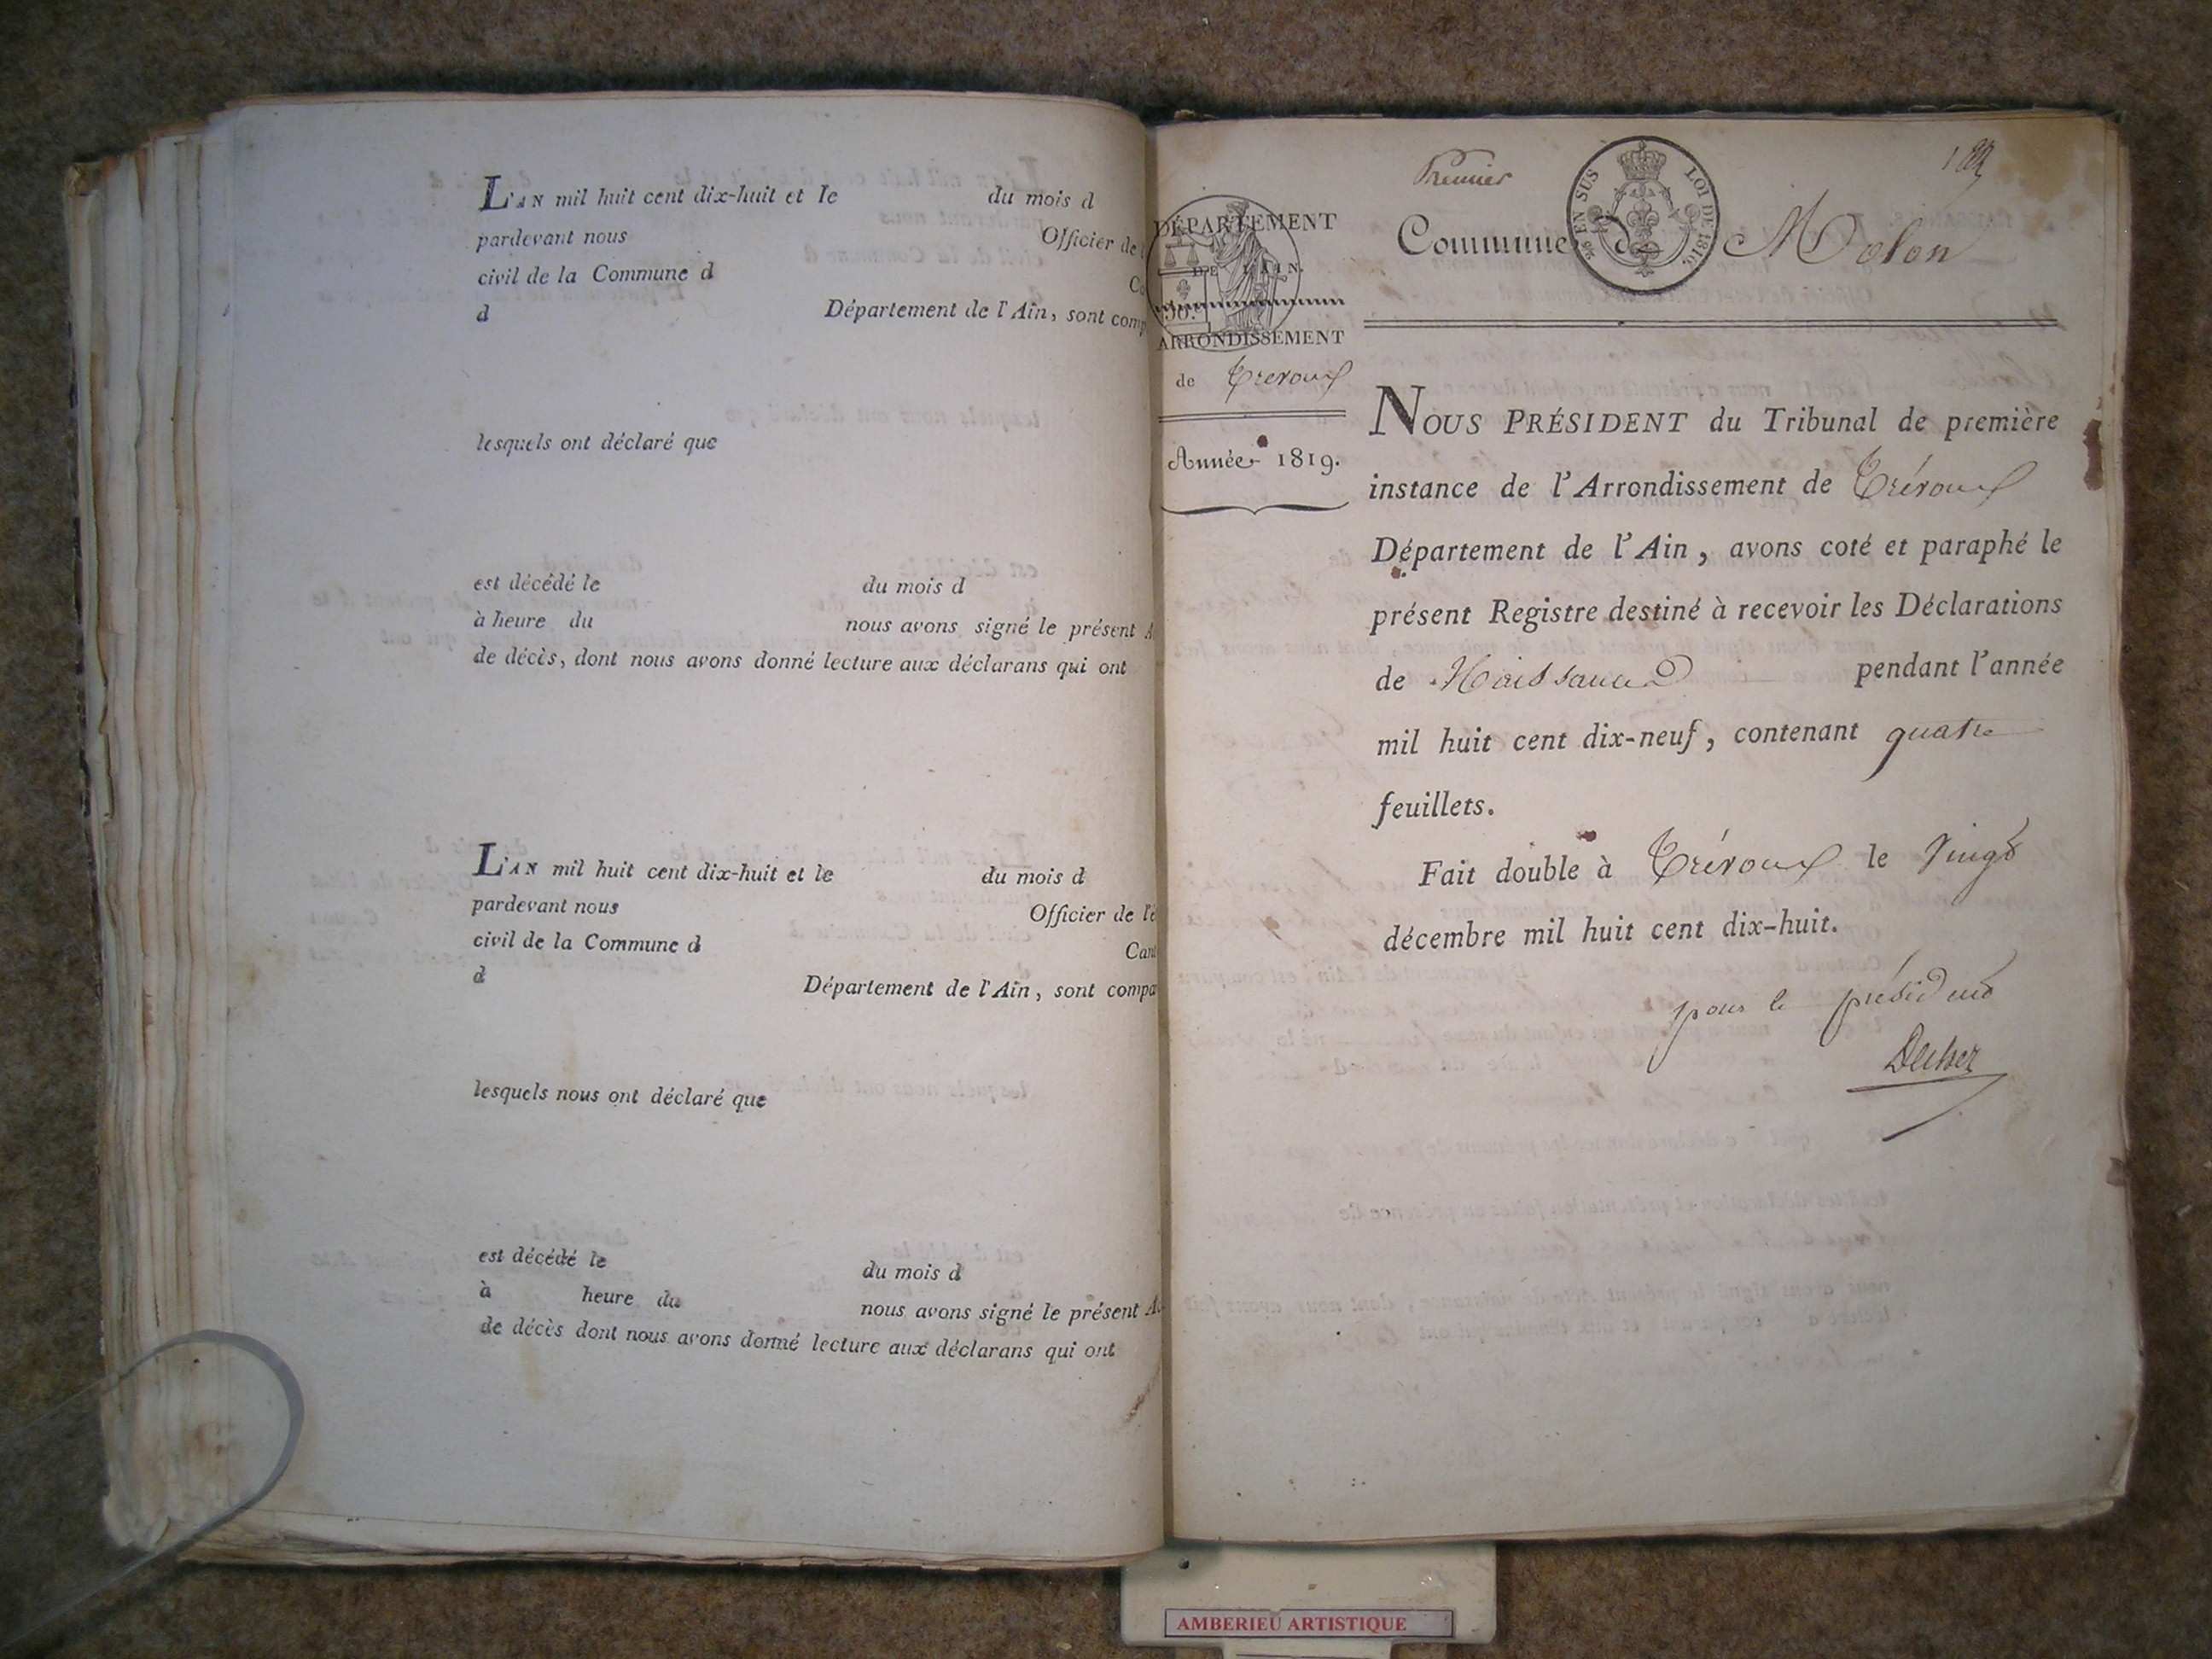 L'AN mil huit cent dix-huit et le du mois d
pardevant nous Officier de
civil de la Commune d
d Département de l'Ain, sont comp
lesquels ont déclaré que
est décédé le du mois d
à heure du nous avons signé le présent A
de décès, dont nous avons donné lecture aux déclarans qui ont
L'AN mil huit cent dix-huit et le du mois d
pardevant nous Officier de l'é
civil de la Commune d Can
d Département de l'Ain, sont compa
lesquels nous ont déclaré que
est décédé le du mois d
à heure du nous avons signé le présent Ac
de décès dont nous avons donné lecture aux déclarans qui ont
DÉPARTEMENT
DE L'AIN.
ARRONDISSEMENT
de Trévoux
Année 1819.
Premier
EN SUS LOI DE 1816.
Commune de Molon
NOUS PRÉSIDENT du Tribunal de première
instance de l'Arrondissement de Trévoux
Département de l'Ain, avons coté et paraphé le
présent Registre destiné à recevoir les Déclarations
de Naissance pendant l'année
mil huit cent dix-neuf, contenant quatre
feuillets.
Fait double à Trévoux le vingt
décembre mil huit cent dix-huit.
pour le président
AMBERIEU ARTISTIQUE